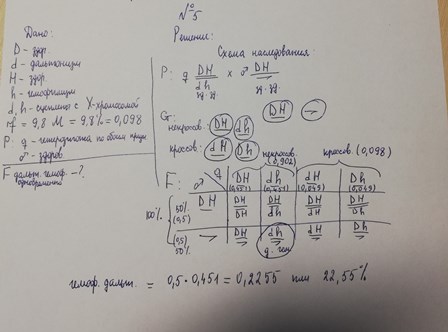 №5
Дано:
D - здр.
d - дальтонизм
H - здор.
h - гемофилия
d, h - сцеплены с X-хромосомой
rf = 9,8 M = 9,8% = 0,098
P: ♀ - гетерозиготна по обоим призн.
♂ - здоров.
F дальт. гемоф. -?
одновременно
Решение:
Схема наследования:
P: ♀ DH/dh x ♂ DH/
зд. зд. зд. зд.
G: некроссов: DH dh DH
кроссов: dH Dh
некроссов. (0,902) кроссов. (0,098)
F: ♂ ♀ DH (0,451) dh (0,451) dH (0,049) Dh (0,049)
100% 50% (0,5) DH DH/DH DH/dh DH/dH DH/Dh
(0,5) 50% DH dh dH Dh
гемоф. дальт. = 0,5 · 0,451 = 0,2255 или 22,55%